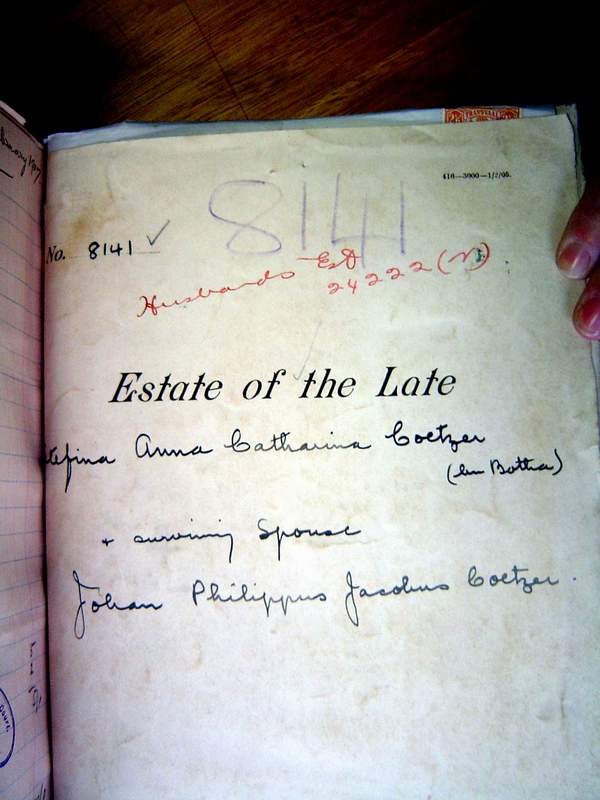 TRANSVAAL
416—3000—1/2/05.
8141
No. 8141
Husbands Est
24222 (N)
Estate of the Late
Stefina Anna Catharina Coetzer
(bn Botha)
+ surviving Spouse
Johan Philippus Jacobus Coetzer.